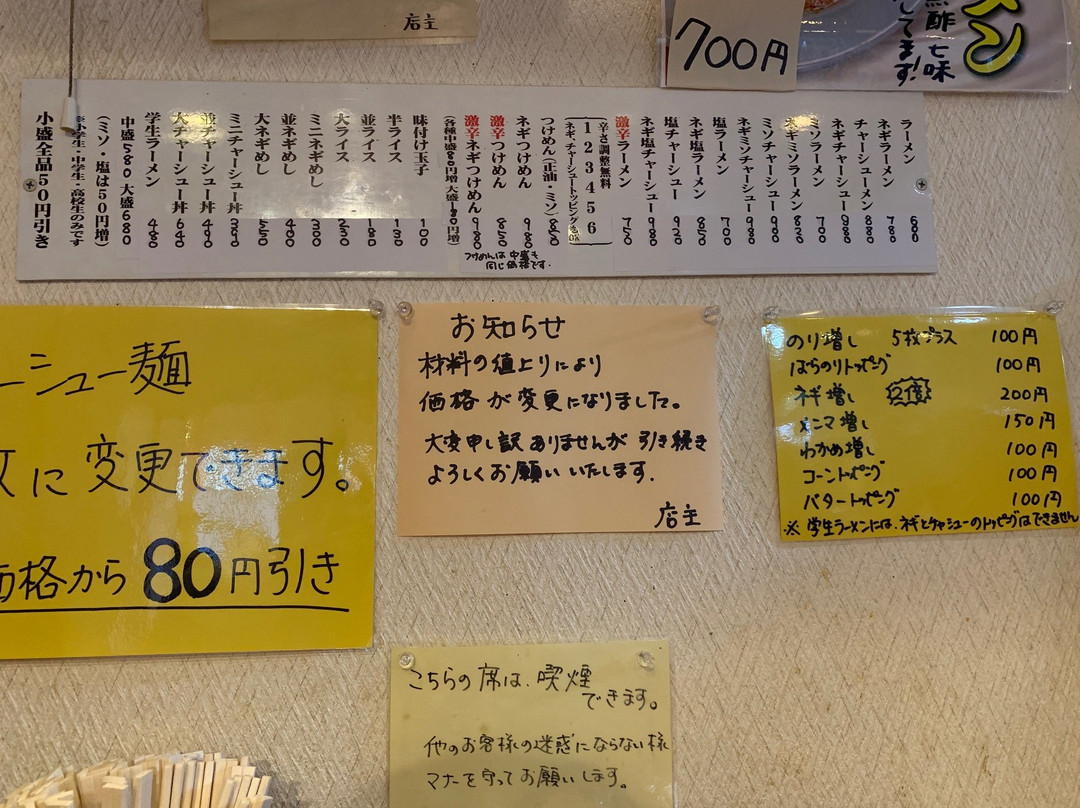 店主
700円
黒酢七味
してます!
ン
ラーメン
ネギラーメン 780
チャーシューメン 880
ネギチャーシュー 980
ミソラーメン 700
ネギミソラーメン 830
ミソチャーシュー
ネギミソチャーシュー 980
塩ラーメン 700
ネギ塩ラーメン 850
塩チャーシュー 920
ネギ塩チャーシュー 980
激辛ラーメン 750
辛さ調整無料
1 2 3 4 5 6
ネギ、チャーシュートッピングもOK
つけめん(正油・ミソ) 850
ネギつけめん 980
激辛つけめん 850
激辛ネギつけめん 980
(各種中盛80円増 大盛180円増)
つけめんは中盛も
同じ価格です.
味付け玉子 100
半ライス 130
並ライス 180
大ライス 230
ミニネギめし 300
並ネギめし 400
大ネギめし 550
ミニチャーシュー丼
並チャーシュー丼 490
大チャーシュー丼 640
学生ラーメン 480
中盛580 大盛680
(ミソ・塩は50円増)
※小学生・中学生・高校生のみです
小盛全品50円引き
ーシュー麺
に変更できます。
価格から80円引き
お知らせ
材料の値上りにより
価格が変更になりました。
大変申し訳ありませんが引き続き
よろしくお願いいたします.
店主
のり増し 5枚プラス 100円
ばらのりトッピング 100円
ネギ増し 2倍 200円
メンマ増し 150円
わかめ増し 100円
コーントッピング 100円
バタートッピング 100円
※学生ラーメンには、ネギとチャシューのトッピングはできません
こちらの席は、喫煙
できます。
他のお客様の迷惑にならない様
マナーを守ってお願いします。